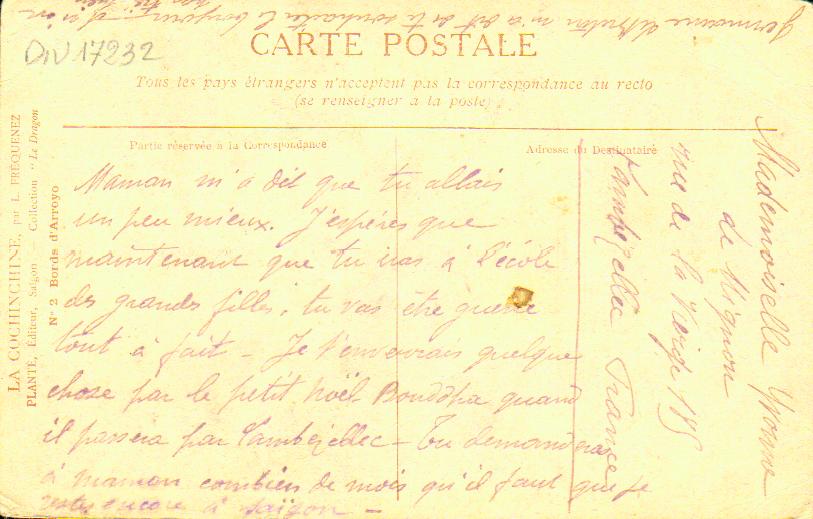 DIV 17232
CARTE POSTALE
Tous les pays étrangers n'acceptent pas la correspondance au recto
(se renseigner à la poste)
Partie réservée à la Correspondance
Adresse du Destinataire
LA COCHINCHINE, par L. FRÉQUENEZ
PLANTÉ, Éditeur, Saïgon — Collection "Le Dragon
N° 2 Bords d'Arroyo
Maman m'a dit que tu allais
un peu mieux. J'espéres que
maintenant que tu iras à l'école
des grandes filles, tu vas être guérie
tout à fait - Je t'enverrais quelque
chose par le petit Noël Bouddha quand
il passera par Lambézellec - Tu demanderas
à maman combien de mois qu'il faut que je
reste encore à Saïgon -
Mademoiselle Yvonne
de Mignon
rue de la 115
Lambézellec France
Germaine m'a dit de te souhaiter le bonjour